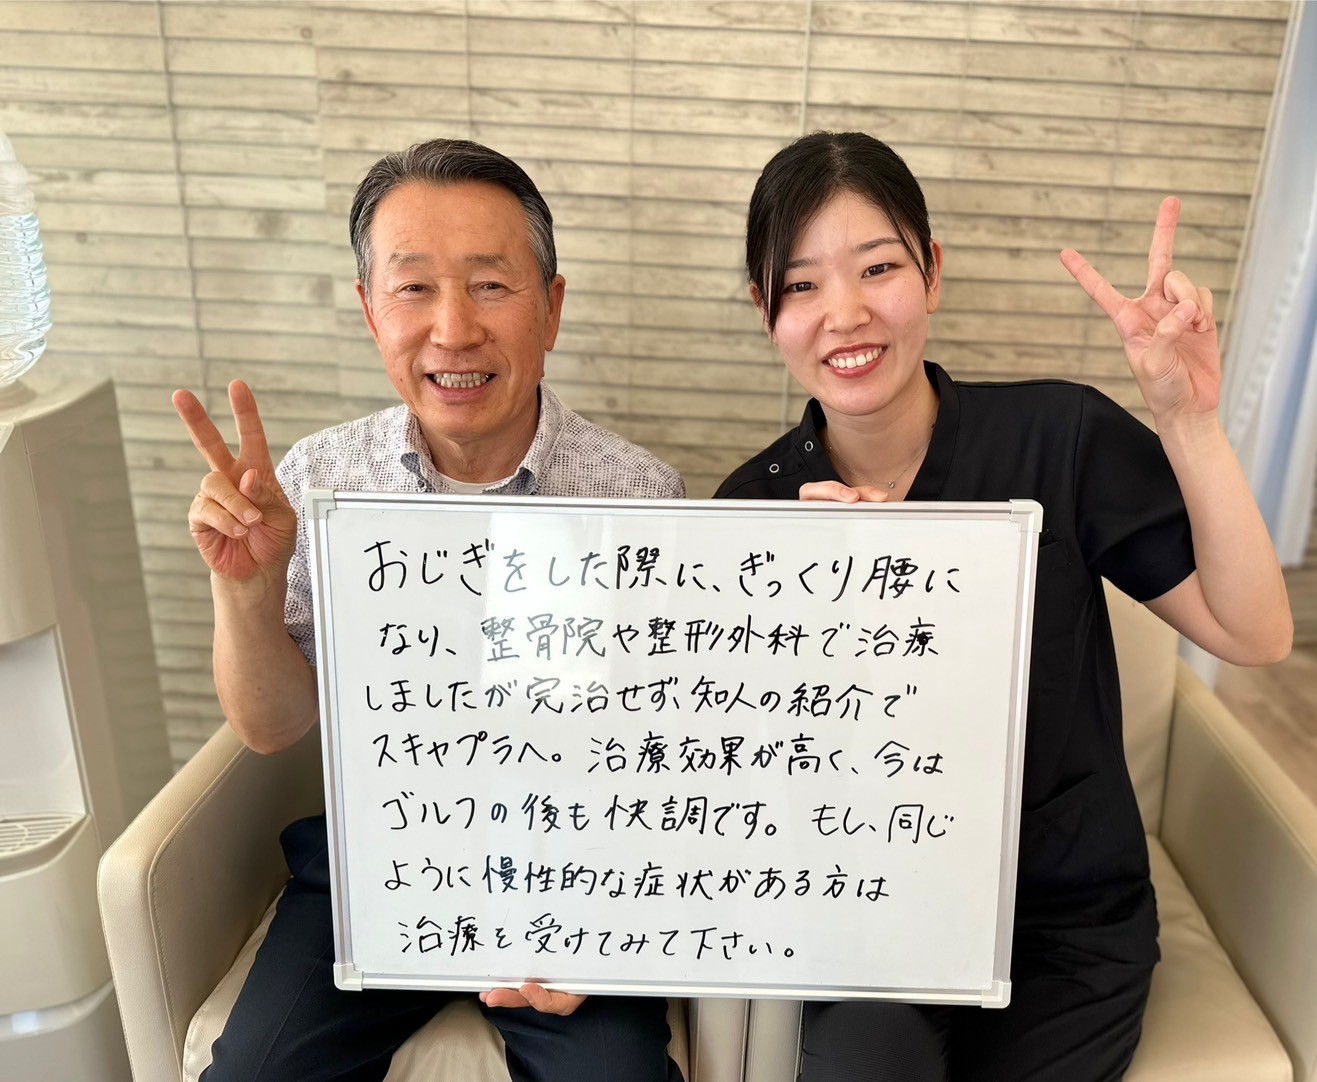 おじぎをした際に、ぎっくり腰に
なり、整骨院や整形外科で治療
しましたが完治せず、知人の紹介で
スキャプラへ。治療効果が高く、今は
ゴルフの後も快調です。もし、同じ
ように慢性的な症状がある方は
治療を受けてみて下さい。